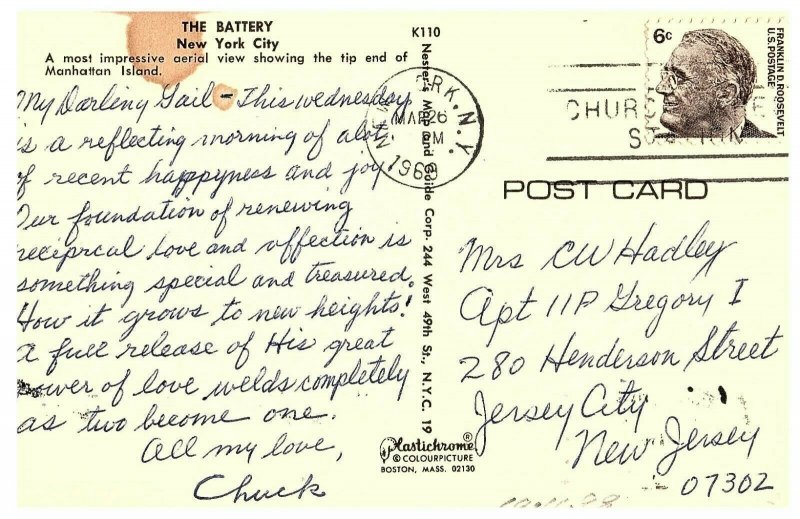 THE BATTERY
New York City
A most impressive aerial view showing the tip end of
Manhattan Island.
My Darling Gail - This wednesday
is a reflecting morning of alot
of recent happyness and joy
Our foundation of renewing
reciprcal love and affection is
something special and treasured.
How it grows to new heights!
A full release of His great
power of love welds completely
as two become one.
All my love,
Chuck
K110
Nester's Map and Guide Corp. 244 West 49th St., N.Y.C. 19
Plastichrome®
© COLOURPICTURE
BOSTON, MASS. 02130
N.Y.
MAR 26
PM
CHURCH
6c
FRANKLIN D. ROOSEVELT
U.S. POSTAGE
POST CARD
Mrs CW Hadley
Apt 11P Gregory I
280 Henderson Street
Jersey City
New Jersey
07302